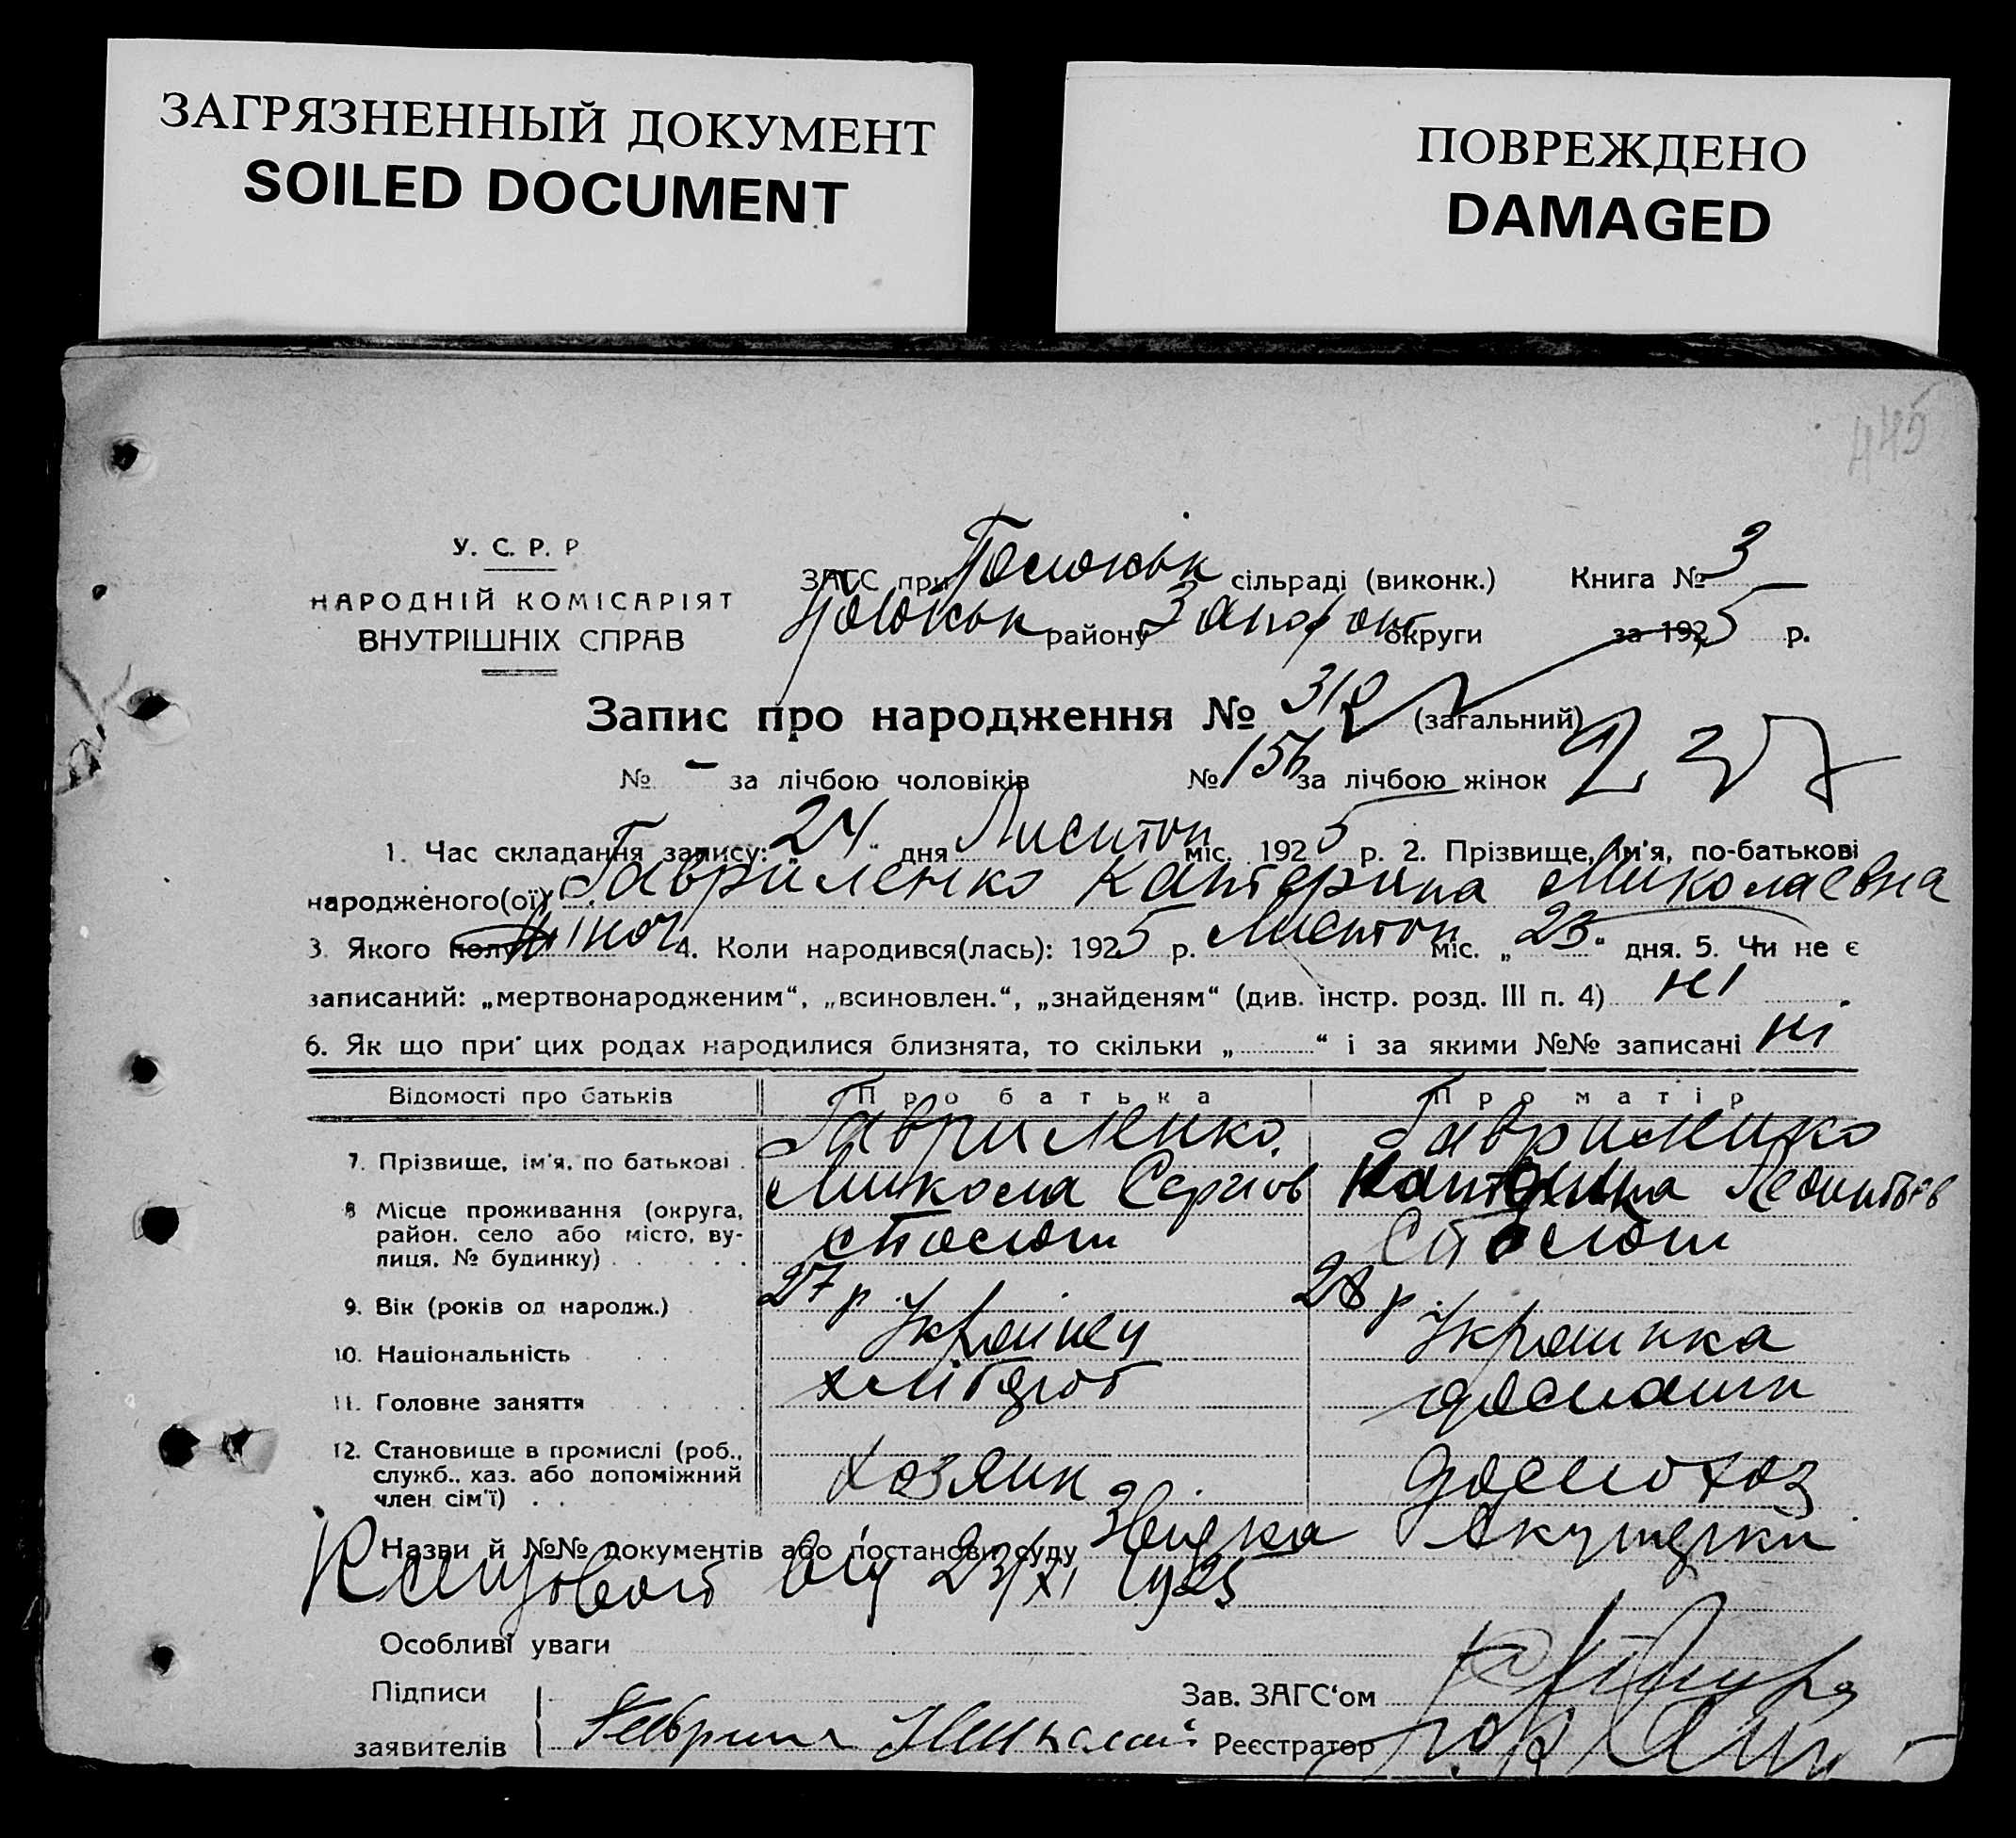 ЗАГРЯЗНЕННЫЙ ДОКУМЕНТ
SOILED DOCUMENT
ПОВРЕЖДЕНО
DAMAGED
445
У. С. Р. Р
НАРОДНІЙ КОМІСАРІЯТ
ВНУТРІШНІХ СПРАВ
ЗАГС при сільраді (виконк.) Книга № 3
району округи за 1925 р.
Запис про народження № 312 (загальний)
№ - за лічбою чоловіків № 156 за лічбою жінок 227
1. Час складання запису: „24“ дня Листоп міс. 1925 р. 2. Прізвище, ім'я, по-батькові
народженого(ої) Гавриленко Катерина Миколаевна
3. Якого полу жіноч 4. Коли народився(лась): 1925 р. Листоп міс. „23“ дня. 5. Чи не є
записаний: „мертвонародженим“, „всиновлен.“, „знайденям“ (див. інстр. розд. III п. 4) ні
6. Як що при цих родах народилися близнята, то скільки „ “ і за якими №№ записані ні
Відомості про батьків Про батька Про матір
7. Прізвище, ім'я, по батькові . Гавриленко Микола Сергіов Гавриленко Катерина Леонтьев
8 Місце проживання (округа, район, село або місто, вулиця, № будинку)
9. Вік (років од народж.) 27 р. 28 р.
10. Національність Українец Украинка
11. Головне заняття хлібороб
12. Становище в промислі (роб., служб., хаз. або допоміжний член сім'ї) . . Хозяин
Назви й №№ документів або постанови суду Звидка Акушерки
від 23/XI 1925
Особливі уваги
Підписи Зав. ЗАГС'ом
заявителів Николай Реєстратор